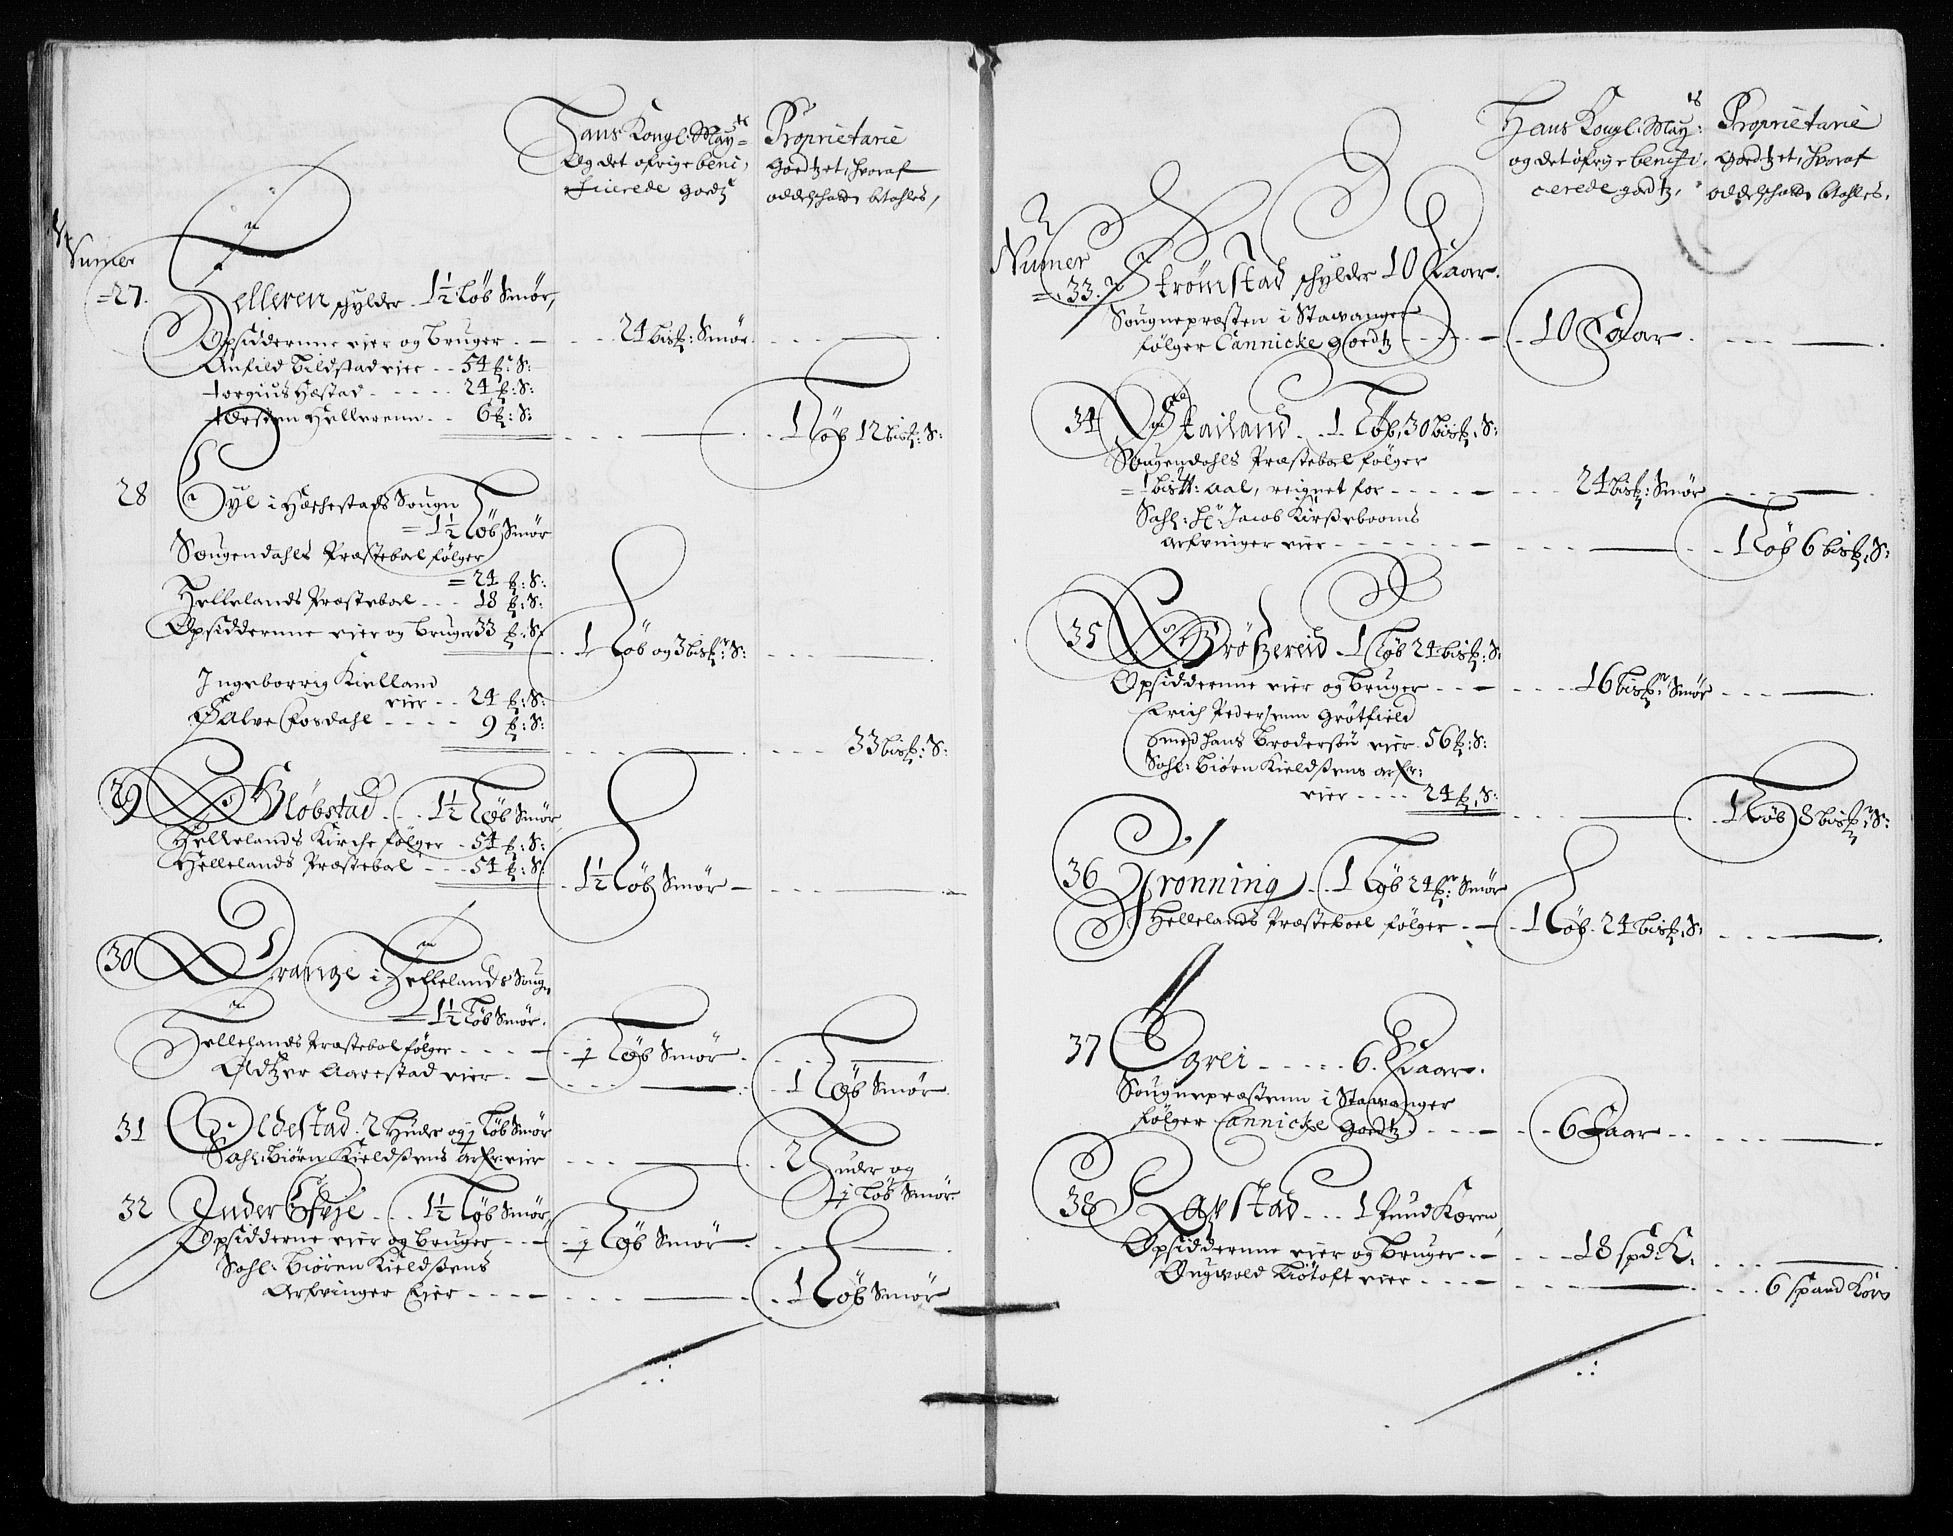 Hans Kongl: May:ts
Og det øfrige beni,
ficierede godtz
Proprietarie
Goedtzet, hvoraf
oddelschatt btahles,
Numer
=27.
Helleren schylder 1½ Løb Smør,
Opsidderne eier og Bruger . — . . . 24 bisk: Smør . . . . —
Anfild Bildstad eier . . 54 ℔: S:
torgius Hæstad . . . . . 24 ℔: S:
torsten Hellerenn . . 6 ℔: S:
. . . — . . 1 Løb 12 bisk: S:
28
Eyl i Hæchestads Sougn
= 1½ Løb Smør
Sougendahls Præstebol følger
= 24 ℔: S:
Hellelands Præstebol . . . 18 ℔: S:
Opsidderne eier og Bruger 33 ℔: S:
1 Løb og 3 bisk: S: . . . . —
Ingeborrig Kielland
eier . . 24 ℔: S:
Salve Eosdahl . . . . . 9 ℔: S:
. . . — . . . . 33 bisk: S:
29
Gløbstad . . 1½ Løb Smør
Hellelands Kirche følger . 54 ℔: S:
Hellelands Præstebol . . . 54 ℔: S:
. 1½ Løb Smør — . . . . —
30
Drange i Hellelands Sougn
= 1½ Løb Smør.
Hellelands Præstebol følger . . . . — . . ½ Løb Smør . . . . —
Oldtzer Aarrstad eier . — . . . — . . 1 Løb Smør
31
Oldestad . 2 Huder og ½ Løb Smør
Sahl: Biørn Kieldsens arfr: eier . . . — . . 2 Huder og
½ Løb Smør
32
Ander Efsje . . . 1½ Løb Smør
Opsidderne eier og Bruger . . — . . ½ Løb Smør . . . . —
Sahl: Biøren Kieldsens
Arfvinger Eier . . . . — . . . — . . 1 Løb Smør
Hans Kongl: May:ts
og det øfrige benifi,
cerede godtz,
Proprietarie
Goedtzet, hvoraf
oddelschatt btahles.
Numer
=33.
Strømstad schylder 10 Faar.
Sougnepræsten i Stawanger
følger Cannicke Goedtz . . . — . 10 Faar . . . . —
34
Stailand . . 1 Løb, 30 bisk: S:
Sougendahls Præstebol følger
= 1 bist: aal, reignet for . . . . — . . . 24 bisk: Smør . . . —
Sahl: Hr: Jacob Kirsebooms
arfvinger eier . . . . . . . — . . . — . . 1 Løb 6 bisk: S:
35
Grøtzereid . 1 Løb 24 bisk: S:
Opsidderne eier og Bruger . . . — . . . 16 bisk: Smør . . . —
Erich Pedersenn Grøtfield
Smed hans Brodersøn eier . 56 ℔: S:
Sahl: Biørn Kieldsens arfr:
eier . . . . 24 ℔: S:
. . . — . . 1 Løb 8 bisk: S:
36
Grønning . . 1 Løb 24 ℔: Smør
Hellelands Præstebol følger . . — . 1 Løb . 24 bisk: S: . . . —
37
Egrei . . . . . 6 . Faar .
Sougnepræstenn i Stawanger
følger Cannicke Goedtz . . . . — . . 6 Faar . . . . —
38
Rapstad . . . 1 Pund Koren
Opsidderne eier og Bruger . — . . . 18 spd: K: . . . . —
Ougwold Tiøtoft eier . . . . — . . . — . . . . 6 spand Korn